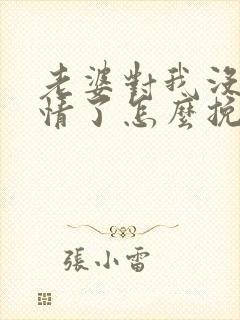 老婆對我沒
情了怎麼挽
張小雷